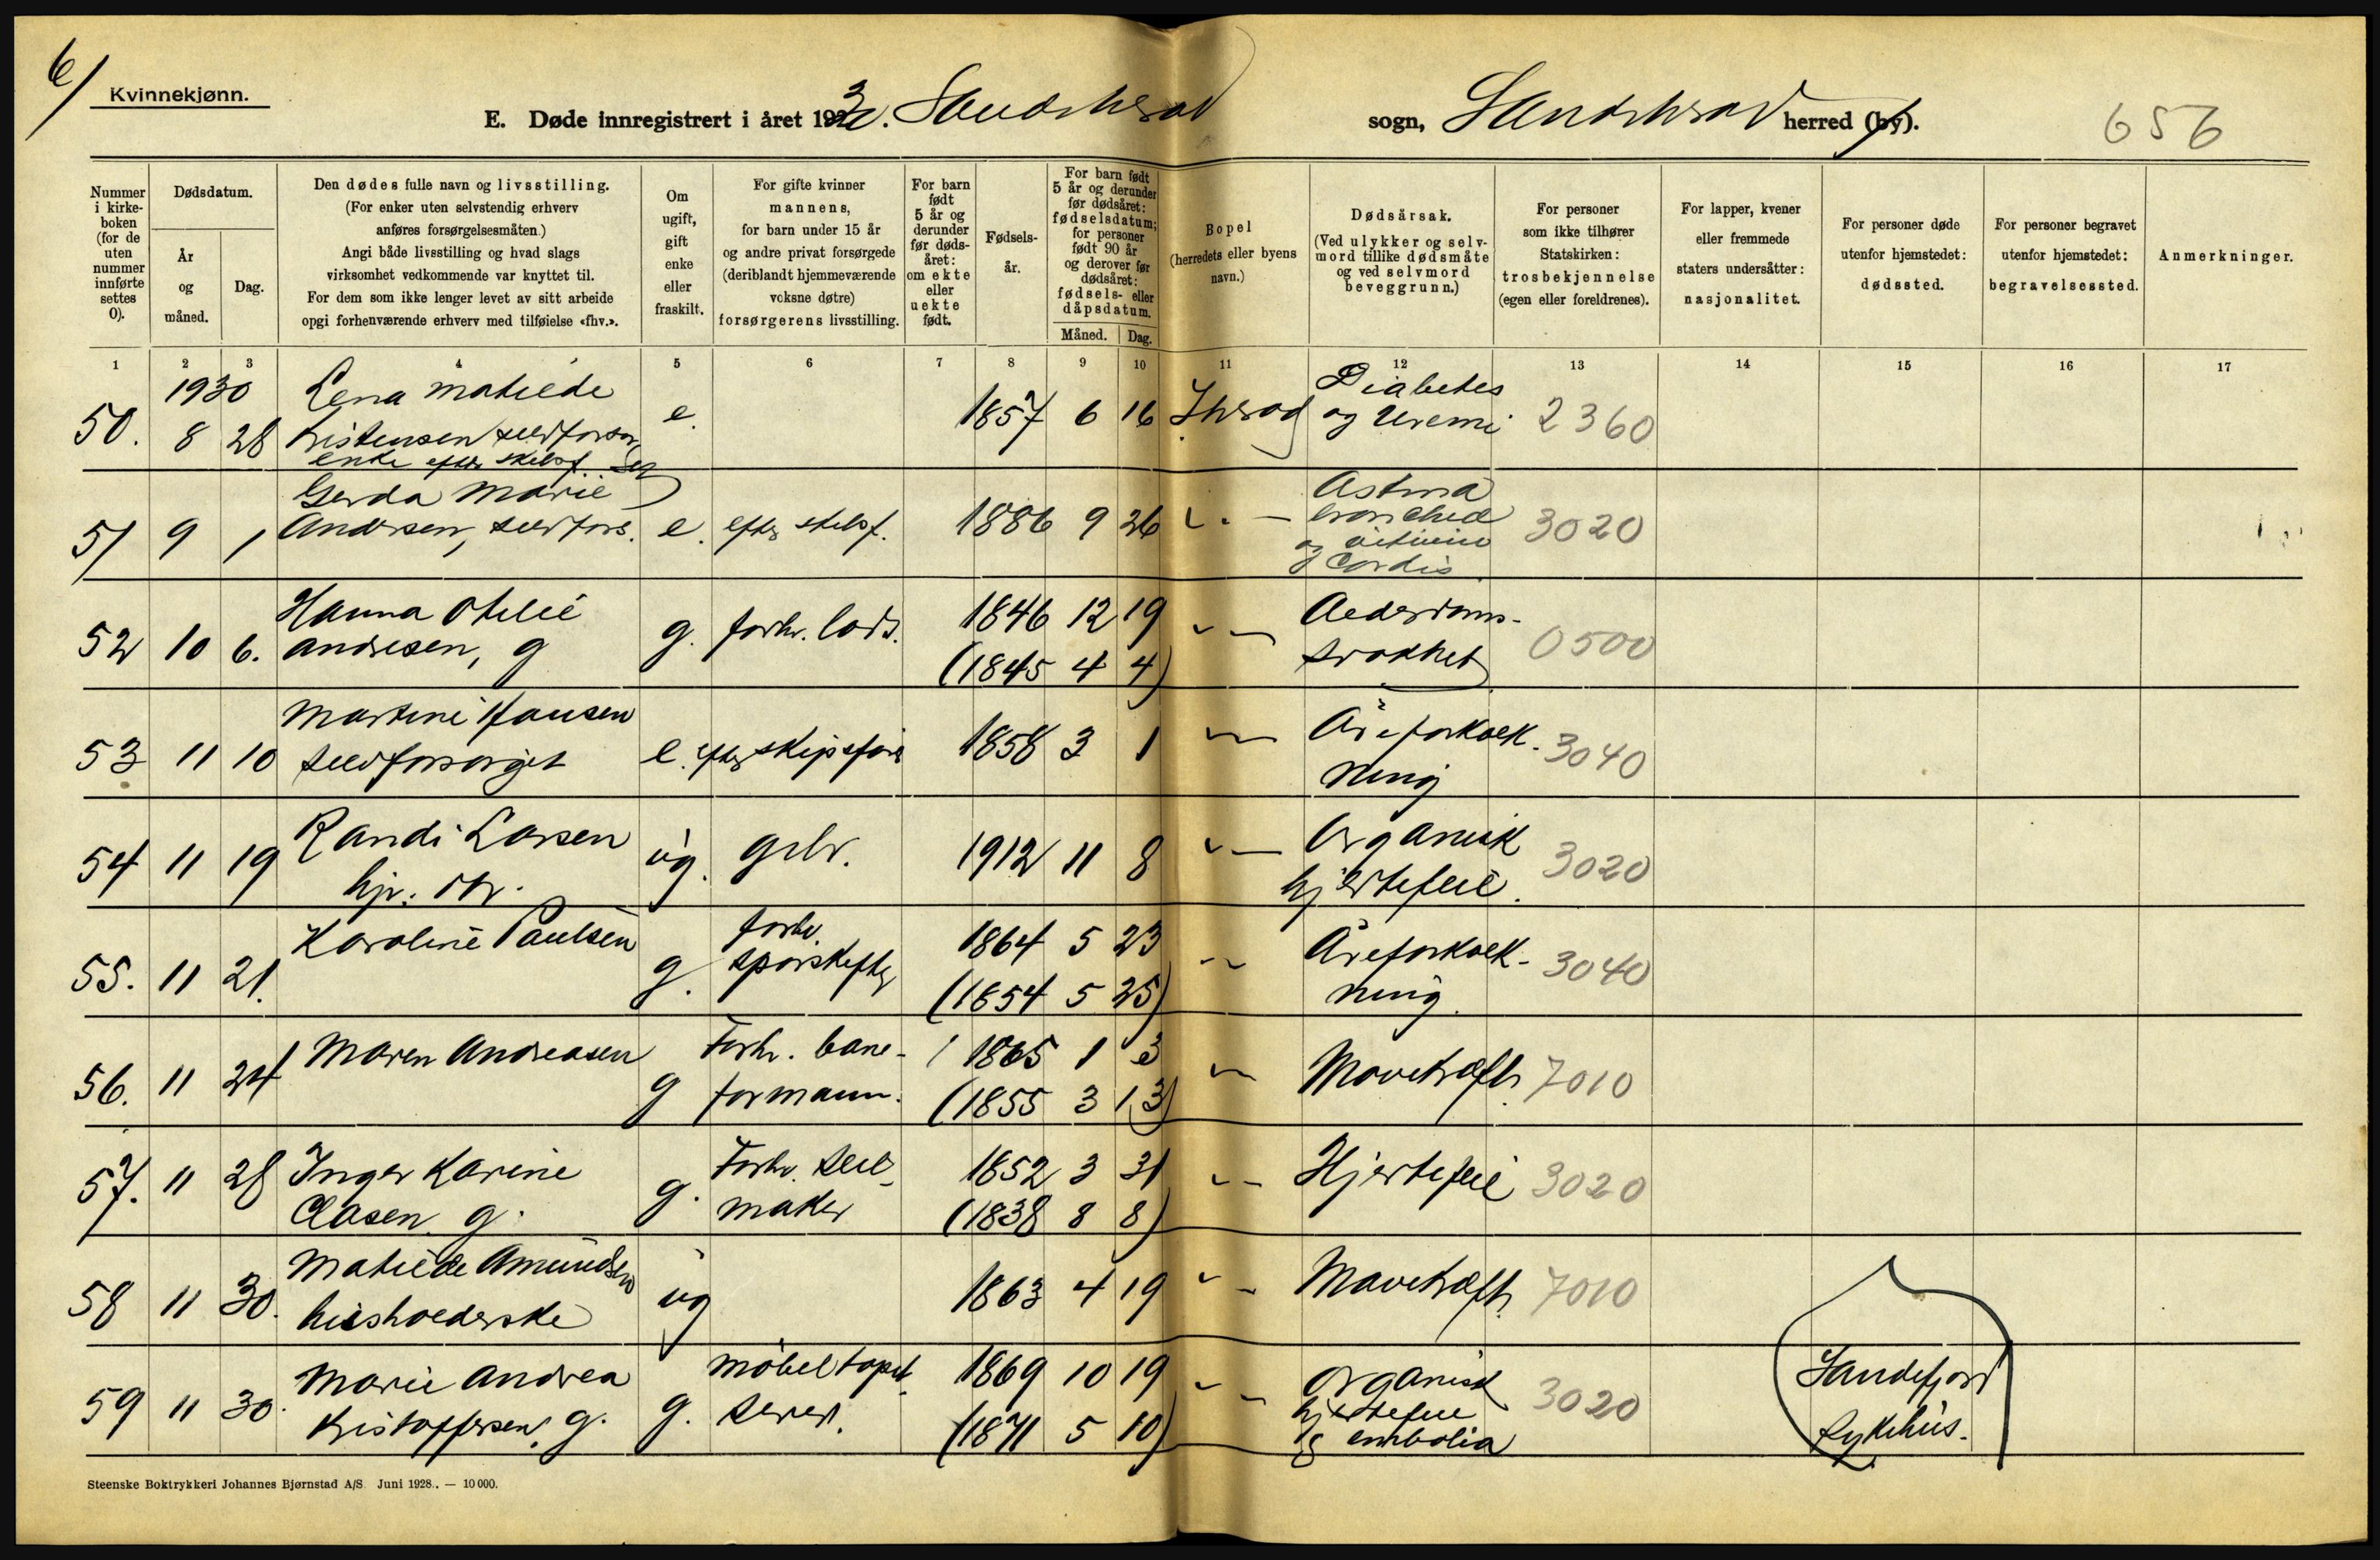 6/
Kvinnekjønn.
E. Døde innregistrert i året 1930. Sandeherad sogn, Sandeherad herred (by).
656
Nummer i kirkeboken (for de uten nummer innførte settes 0).
Dødsdatum.
År og måned.
Dag.
Den dødes fulle navn og livsstilling.
(For enker uten selvstendig erhverv
anføres forsørgelsesmåten.)
Angi både livsstilling og hvad slags
virksomhet vedkommende var knyttet til.
For dem som ikke lenger levet av sitt arbeide
opgi forhenværende erhverv med tilføielse «fhv.».
Om ugift, gift enke eller fraskilt.
For gifte kvinner
mannens,
for barn under 15 år
og andre privat forsørgede
(deriblandt hjemmeværende
voksne døtre)
forsørgerens livsstilling.
For barn født 5 år og derunder før dødsåret: om ekte eller uekte født.
Fødselsår.
For barn født 5 år og derunder før dødsåret: fødselsdatum; for personer født 90 år og derover før dødsåret: fødsels- eller dåpsdatum.
Måned. Dag.
Bopel
(herredets eller byens
navn.)
Dødsårsak.
(Ved ulykker og selv-
mord tillike dødsmåte
og ved selvmord
beveggrunn.)
For personer
som ikke tilhører
Statskirken:
trosbekjennelse
(egen eller foreldrenes).
For lapper, kvener
eller fremmede
staters undersåtter:
nasjonalitet.
For personer døde
utenfor hjemstedet:
dødssted.
For personer begravet
utenfor hjemstedet:
begravelsessted.
Anmerkninger.
1 2 3 4 5 6 7 8 9 10 11 12 13 14 15 16 17
1930 Lena Matilde Diabetes
50. 8 28 Kristensen selvforsør e. 1857 6 16 Sherad og Uremi 2360
enke efter skibsf.
Gerda Marie Astma
51 9 1 Andersen, selvfors. e. efter skibsf. 1886 9 26 " — bronchial 3020
og
Cordis
Hanna Otelie 1846 12 19 Alderdoms-
52 10 6. Andresen, g g. forhv. lods. (1845 4 4) " — svakhet 0500
Martine Hansen Åreforkalk-
53 11 10 selvforsørget e. efter skipsfører 1858 3 1 " — ning 3040
Randi Larsen Organisk
54 11 19 hjv. dtr. ug. grbr. 1912 11 8 " — hjertefeil. 3020
Karoline Paulsen forhv. 1864 5 23 Åreforkalk-
55. 11 21. g. sporskifter (1854 5 25) " — ning. 3040
Maren Andreasen Forhv. bane- 1865 1 3
56. 11 24 g formann. (1855 3 13) " — Mavekræft. 7010
57. 11 28 Inger Karine Forhv. seil- 1852 3 31 " — Hjertefeil 3020
Clasen g. g. maker (1838 8 8)
Matilde Amundsen
58 11 30. husholderske ug 1863 4 19 " — Mavekræft. 7010
Marie Andrea møbeltapet- 1869 10 19 Organisk Sandefjord
59 11 30. Kristoffersen, g. g. serer. (1871 5 10) " — hjertefeil 3020 sykehus.
og embolia
Steenske Boktrykkeri Johannes Bjørnstad A/S. Juni 1928. — 10 000.